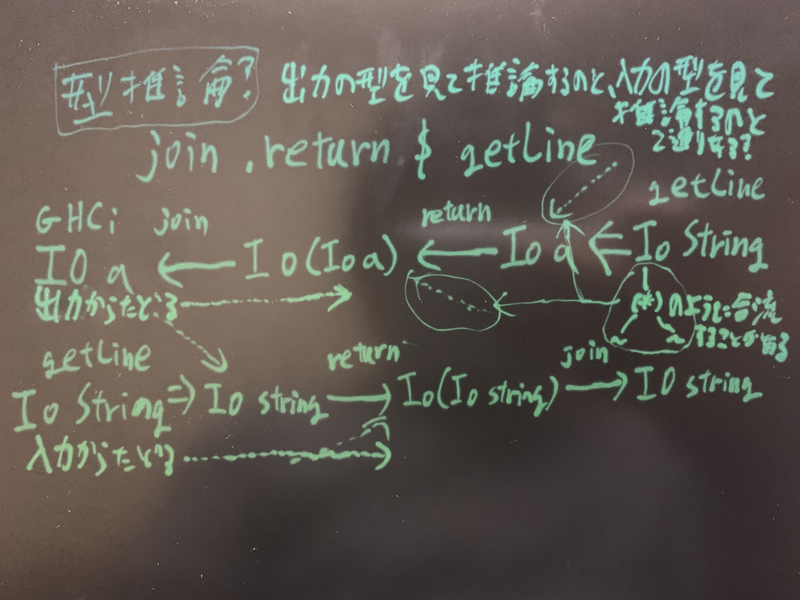 型推論?
出力の型を見て推論するのと、入力の型を見て
推論するのと
で違うなる?
join . return $ getLine
getLine
GHCi join return
IO a ← Io(Io a) ← Io a ⇐ Io String
出力からたどる
(*)のように合流
a a することがある
getLine return join
Io String ⇒ Io string → Io(Io string) → IO string
入力からたどる